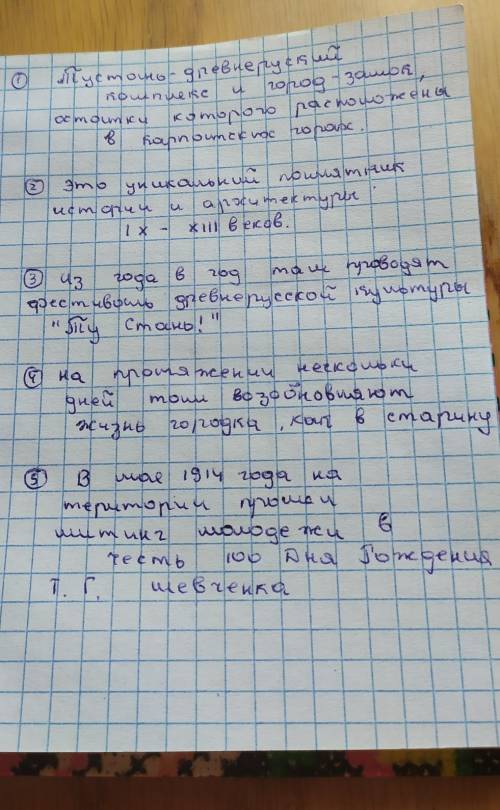 ① Тустань-древнеруский
комплекс и город-замок,
остатки которого расположены
в карпатских горах.
② это уникальний памятник
истории и архитектуры
IX - XIII веков.
③ из года в год там проводят
фестиваль древнерусской культуры
"Ту Стань!"
④ на протяжении нескольки
дней там возобновляют
жизнь городка, как в старину
⑤ В мае 1914 года на
територии прошел
митинг молодежи в
честь 100 Дня Рождения
Т. Г. шевченка